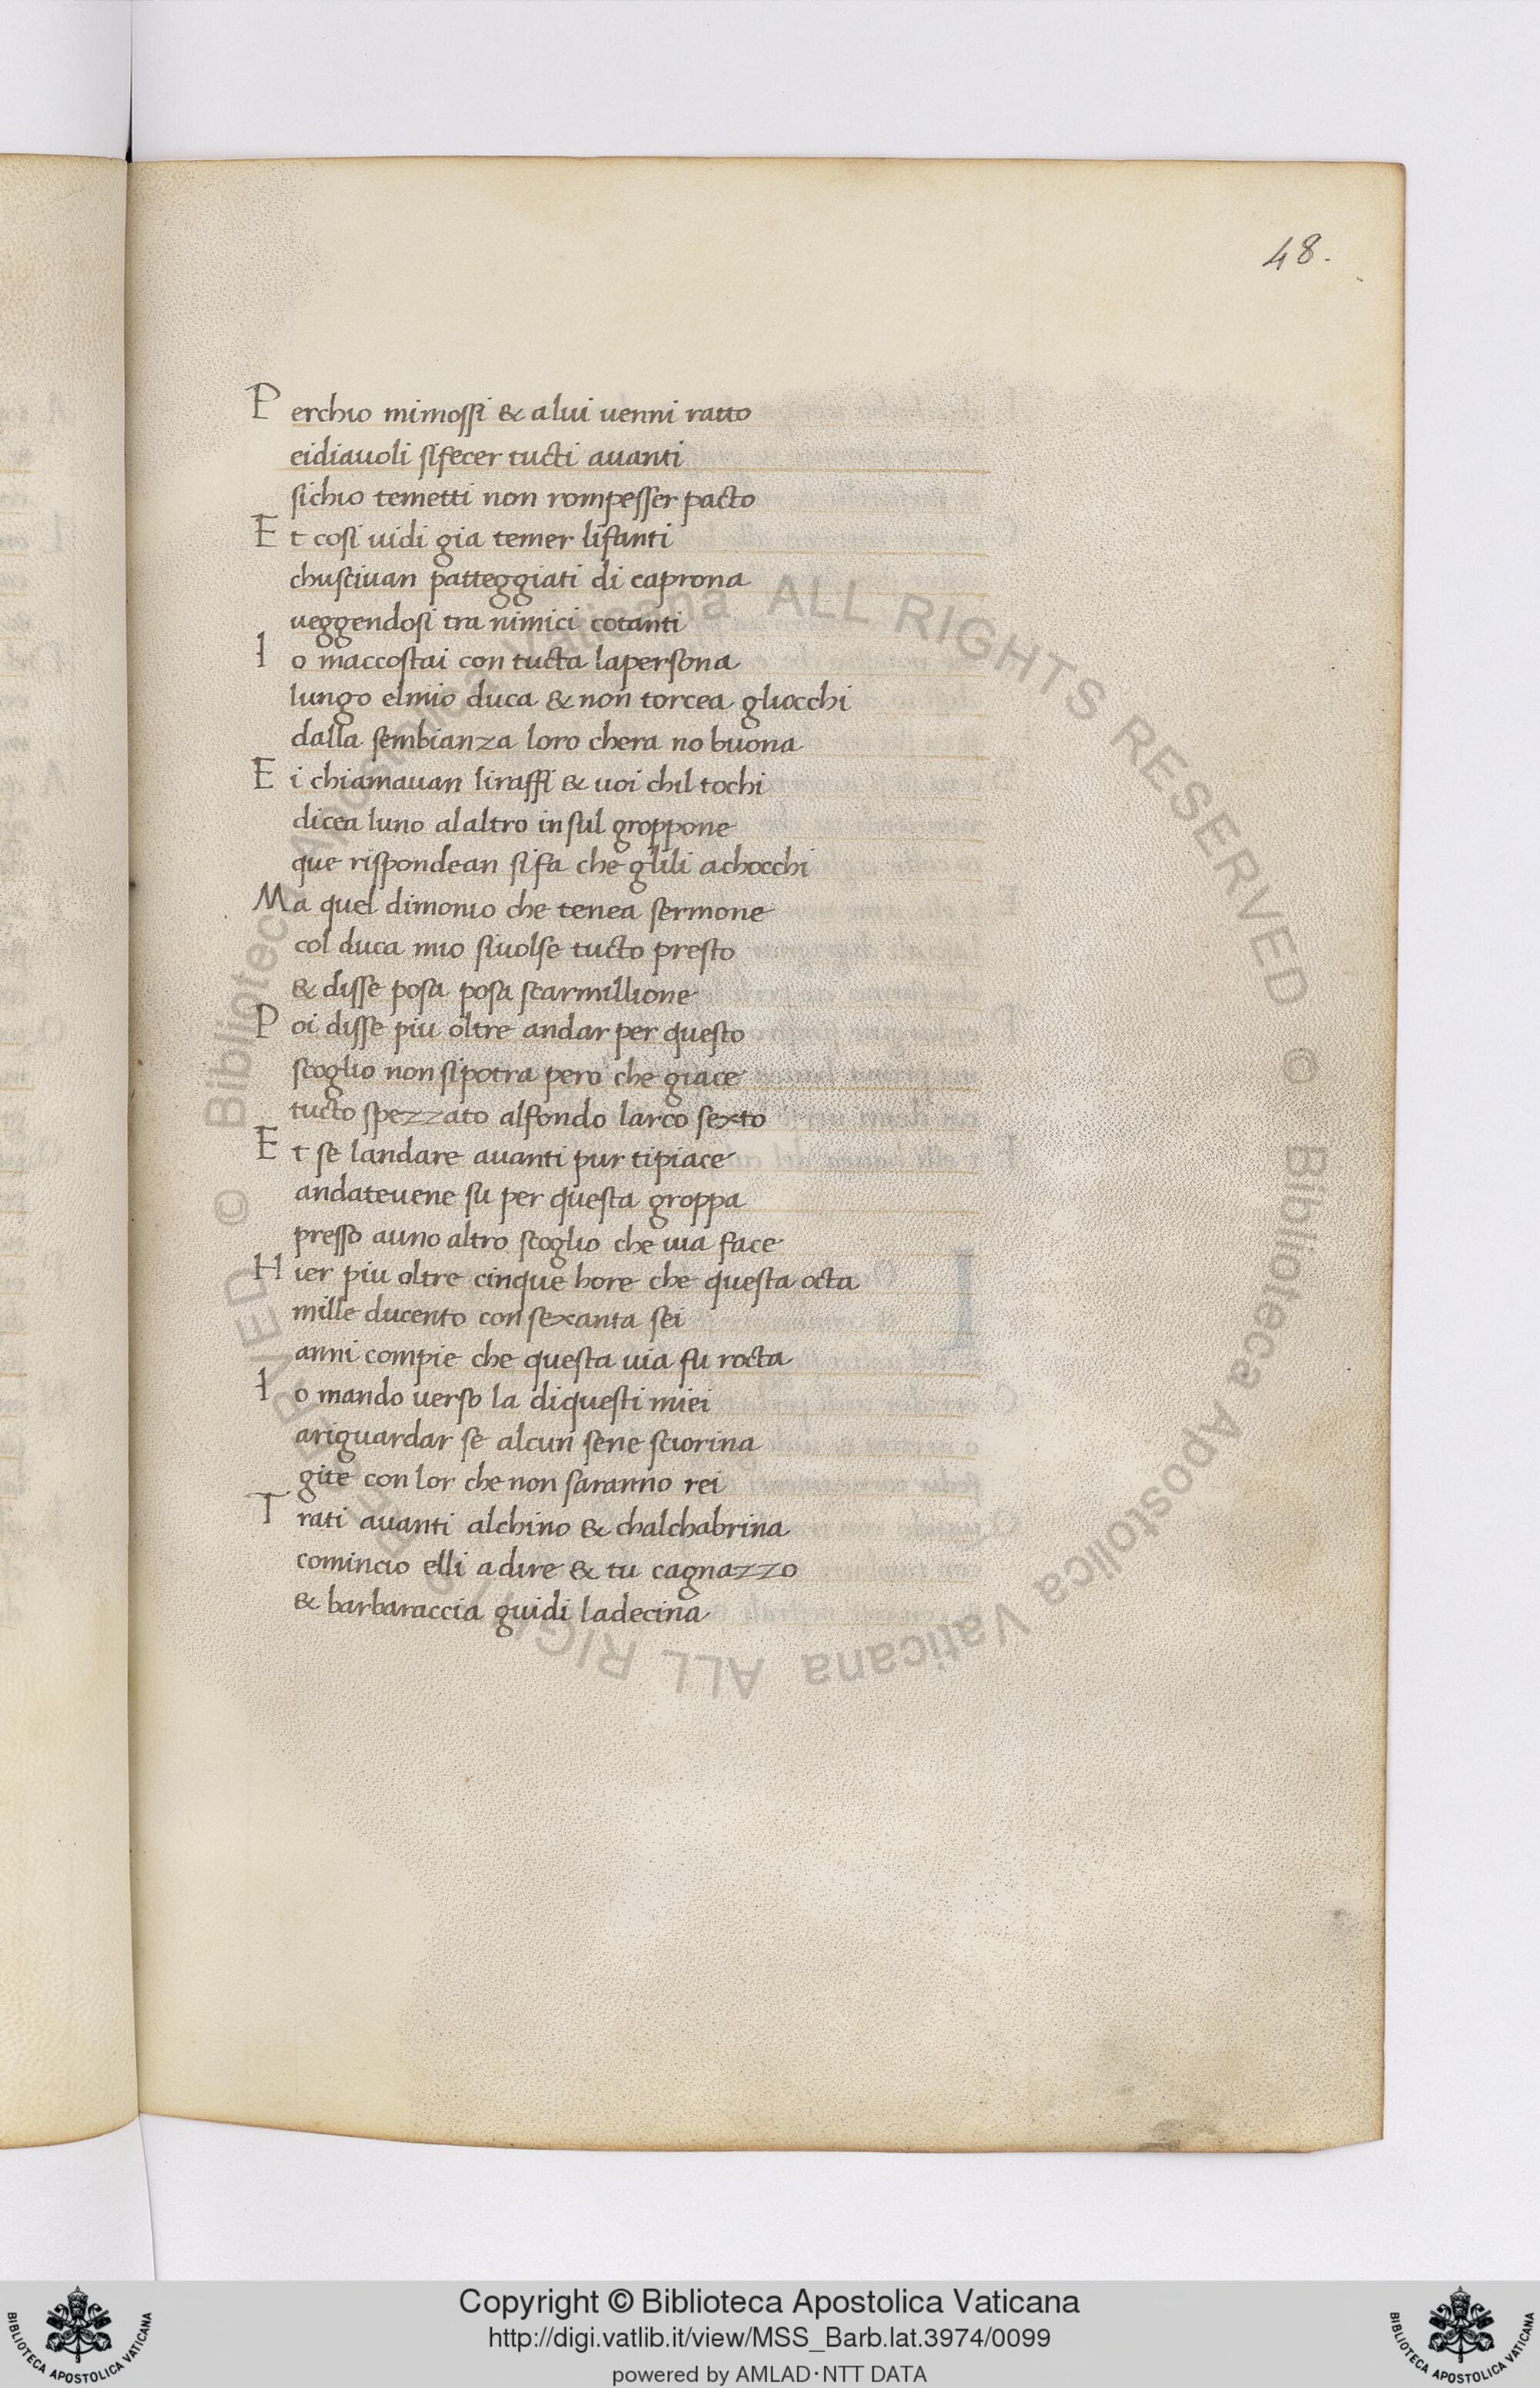 48.
Perchio mimossi & alui uenni ratto
eidiauoli sifecer tucti auanti
sichio temetti non rompesser pacto
Et cosi uidi gia temer lifanti
chusciuan patteggiati di caprona
ueggendosi tra nimici cotanti
Io maccostai con tucta lapersona
lungo elmio duca & non torcea gliocchi
dalla sembianza loro chera no buona
Ei chiamauan liraffi & uoi chil tochi
dicea luno alaltro in sul groppone
que rispondean si fa che glili achocchi
Ma quel dimonio che tenea sermone
col duca mio siuolse tucto presto
& disse posa posa scarmillione
Poi disse piu oltre andar per questo
scoglio non sipotra pero che giace
tucto spezzato alfondo larco sexto
Et se landare auanti pur tipiace
andateuene su per questa groppa
presso auno altro scoglio che uia face
Hier piu oltre cinque hore che questa octa
mille ducento con sexanta sei
anni compie che questa uia fu rocta
Io mando uerso la diquesti miei
ariguardar se alcun sene sciorina
gite con lor che non saranno rei
Trati auanti alchino & chalchabrina
comincio elli adire & tu cagnazzo
& barbaraccia guidi ladecina
© Biblioteca Apostolica Vaticana ALL RIGHTS RESERVED © Biblioteca Apostolica Vaticana ALL RIGHTS RESERVED
BIBLIOTECA APOSTOLICA VATICANA
Copyright © Biblioteca Apostolica Vaticana
http://digi.vatlib.it/view/MSS_Barb.lat.3974/0099
powered by AMLAD·NTT DATA
BIBLIOTECA APOSTOLICA VATICANA